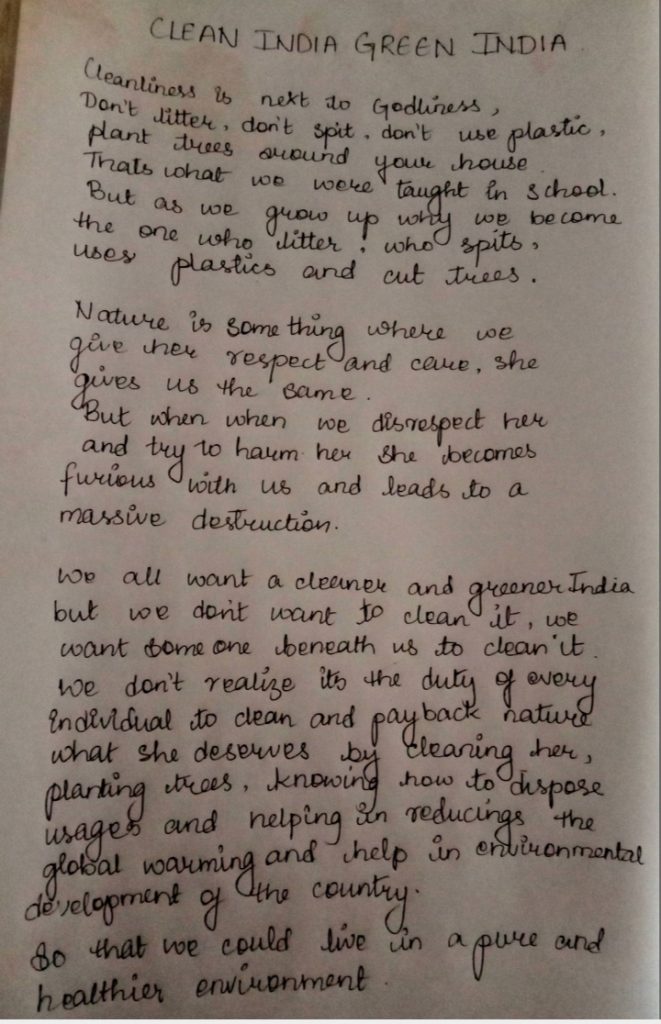 CLEAN INDIA GREEN INDIA
Cleanliness is next to Godliness,
Don't litter, don't spit, don't use plastic,
plant trees around your house.
Thats what we were taught in school.
But as we grow up why we become
the one who litter, who spits,
uses plastics and cut trees.
Nature is something where we
give her respect and care, she
gives us the same.
But when when we disrespect her
and try to harm her she becomes
furious with us and leads to a
massive destruction.
We all want a cleaner and greener India
but we don't want to clean it, we
want some one beneath us to clean it.
We don't realize its the duty of every
individual to clean and payback nature
what she deserves by cleaning her,
planting trees, knowing how to dispose
usages and helping in reducings the
global warming and help in environmental
development of the country.
So that we could live in a pure and
healthier environment.